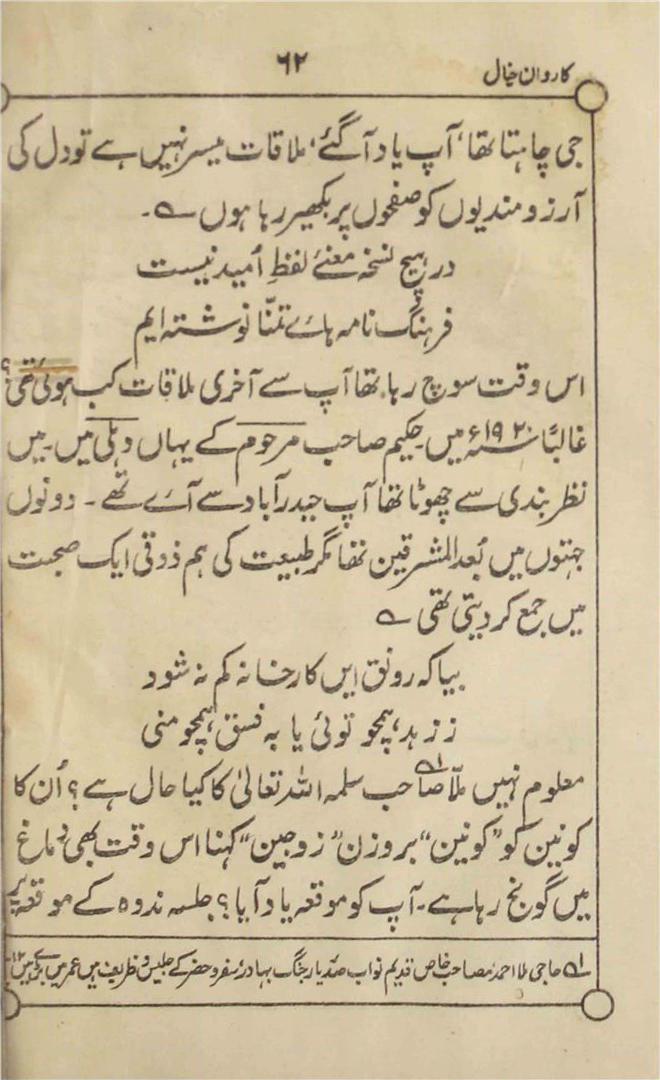 کاروان خیال
۶۲
جی چاہتا تھا، آپ یاد آگئے، ملاقات میسر نہیں ہے تو دل کی
آرزومندیوں کو صفحوں پر بکھیر رہا ہوں ؎۔
در ہیچ نسخہ معنئے لفظِ اُمید نیست
فرہنگ نامہ ہائے تمنّا نوشتہ ایم
اس وقت سوچ رہا تھا آپ سے آخری ملاقات کب ہوئی تھی؟
غالبًا ۱۹۲۰ء میں۔ حکیم صاحب مرحوم کے یہاں دہلی میں۔ میں
نظر بندی سے چھوٹا تھا آپ حیدرآباد سے آئے تھے۔ دونوں
جہتوں میں بُعد المشرقین تھا مگر طبیعت کی ہم ذوقی ایک صحبت
میں جمع کردیتی تھی ؎
بیا کہ رونق ایں کارخانہ کم نہ شود
ز زہد، ہمچو توئی یا بہ فسق، ہمچو منی
معلوم نہیں ملّا صاحب ؎۱ سلمہ اللہ تعالیٰ کا کیا حال ہے؟ اُن کا
کونین کو "کونین" بروزن "زوجین" کہنا اس وقت بھی دماغ
میں گونج رہا ہے۔ آپ کو موقعہ یاد آیا؟ جلسہ ندوہ کے موقعہ پر
؎۱ حاجی ملا احمد، مصاحب خاص قدیم نواب صدر یار جنگ بہادر، سفر و حضر کے جلیس و ظریف میں عمر میں بڑے ہیں ۱۲